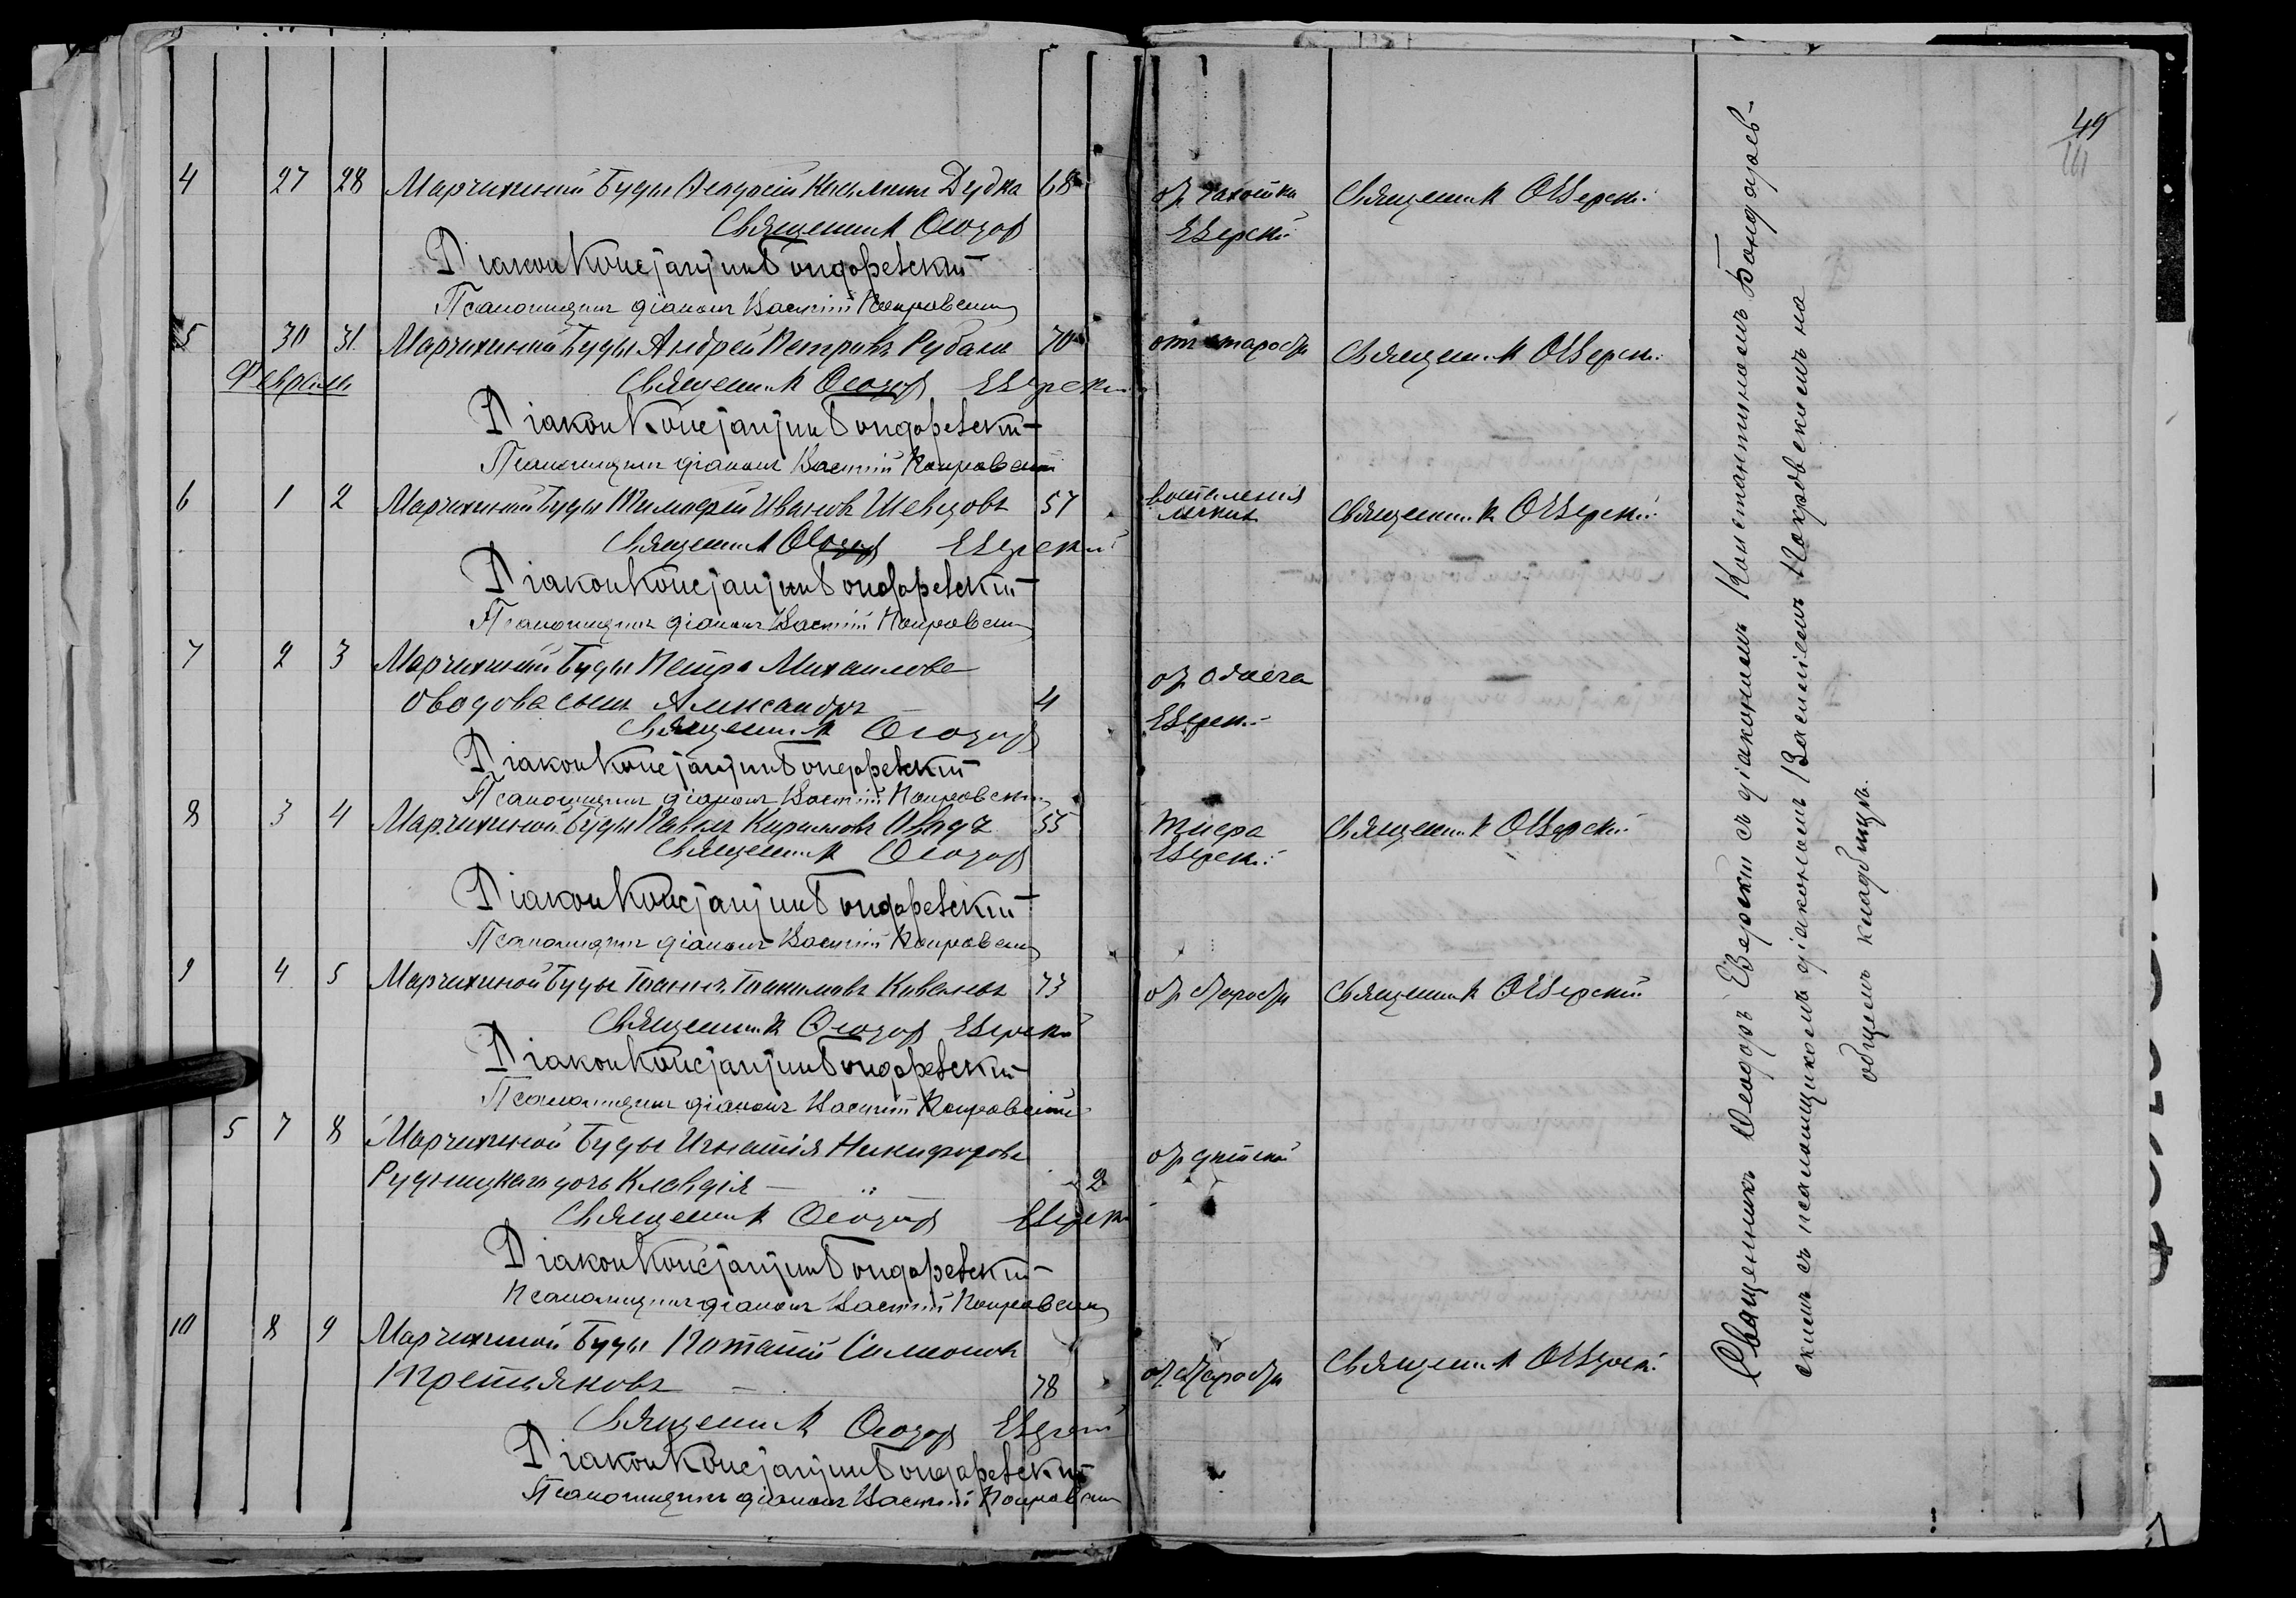 49
4 27 28 Марчихиной Буды Феодосій Дудка 68 от чахотки Священник Ѳ Еверскій
Священник Ѳеодор Еверскій
Діакон Констянтин Бондаревскій
Псаломщик діакон Василій Покровскій
5 30 31 Марчихиной Буды Андрей Петровъ Рубанъ 70 отъ старости Священник Ѳ Еверскій
Февраль Священник Ѳеодор Еверскій
Діакон Констянтин Бондаревскій
Псаломщик діакон Василій Покровскій
6 1 2 Марчихиной Буды Тимофей Ивановъ Шевцовъ 57 воспаленія легких Священник Ѳ Еверскій
Священник Ѳеодор Еверскій
Діакон Констянтин Бондаревскій
Псаломщик діакон Василій Покровскій
7 2 3 Марчихиной Буды Петра Михаилова
Оводова сынъ Александръ 4
Священник Ѳеодор Еверскій
Діакон Констянтин Бондаревскій
Псаломщик діакон Василій Покровскій
8 3 4 Марчихиной Буды Павелъ Кириловъ 55 Священник Ѳ Еверскій
Священник Ѳеодор Еверскій
Діакон Констянтин Бондаревскій
Псаломщик діакон Василій Покровскій
9 4 5 Марчихиной Буды Іоаннъ Іоакимовъ Ковалевъ 73 от старости Священник Ѳ Еверскій
Священник Ѳеодор Еверскій
Діакон Констянтин Бондаревскій
Псаломщик діакон Василій Покровскій
5 7 8 Марчихиной Буды Игнатія Никифорова
Рудницкаго дочь Клавдія 2
Священник Ѳеодор Еверскій
Діакон Констянтин Бондаревскій
Псаломщик діакон Василій Покровскій
10 8 9 Марчихиной Буды Потапій Симеоновъ
Третьяковъ 78 от старости Священник Ѳ Еверскій
Священник Ѳеодор Еверскій
Діакон Констянтин Бондаревскій
Псаломщик діакон Василій Покровскій
Священникъ Ѳеодоръ Еверскій съ діакономъ Константиномъ Бондарев-
скимъ съ псаломщикомъ діакономъ Василіемъ Покровскимъ на
общемъ кладбищѣ.